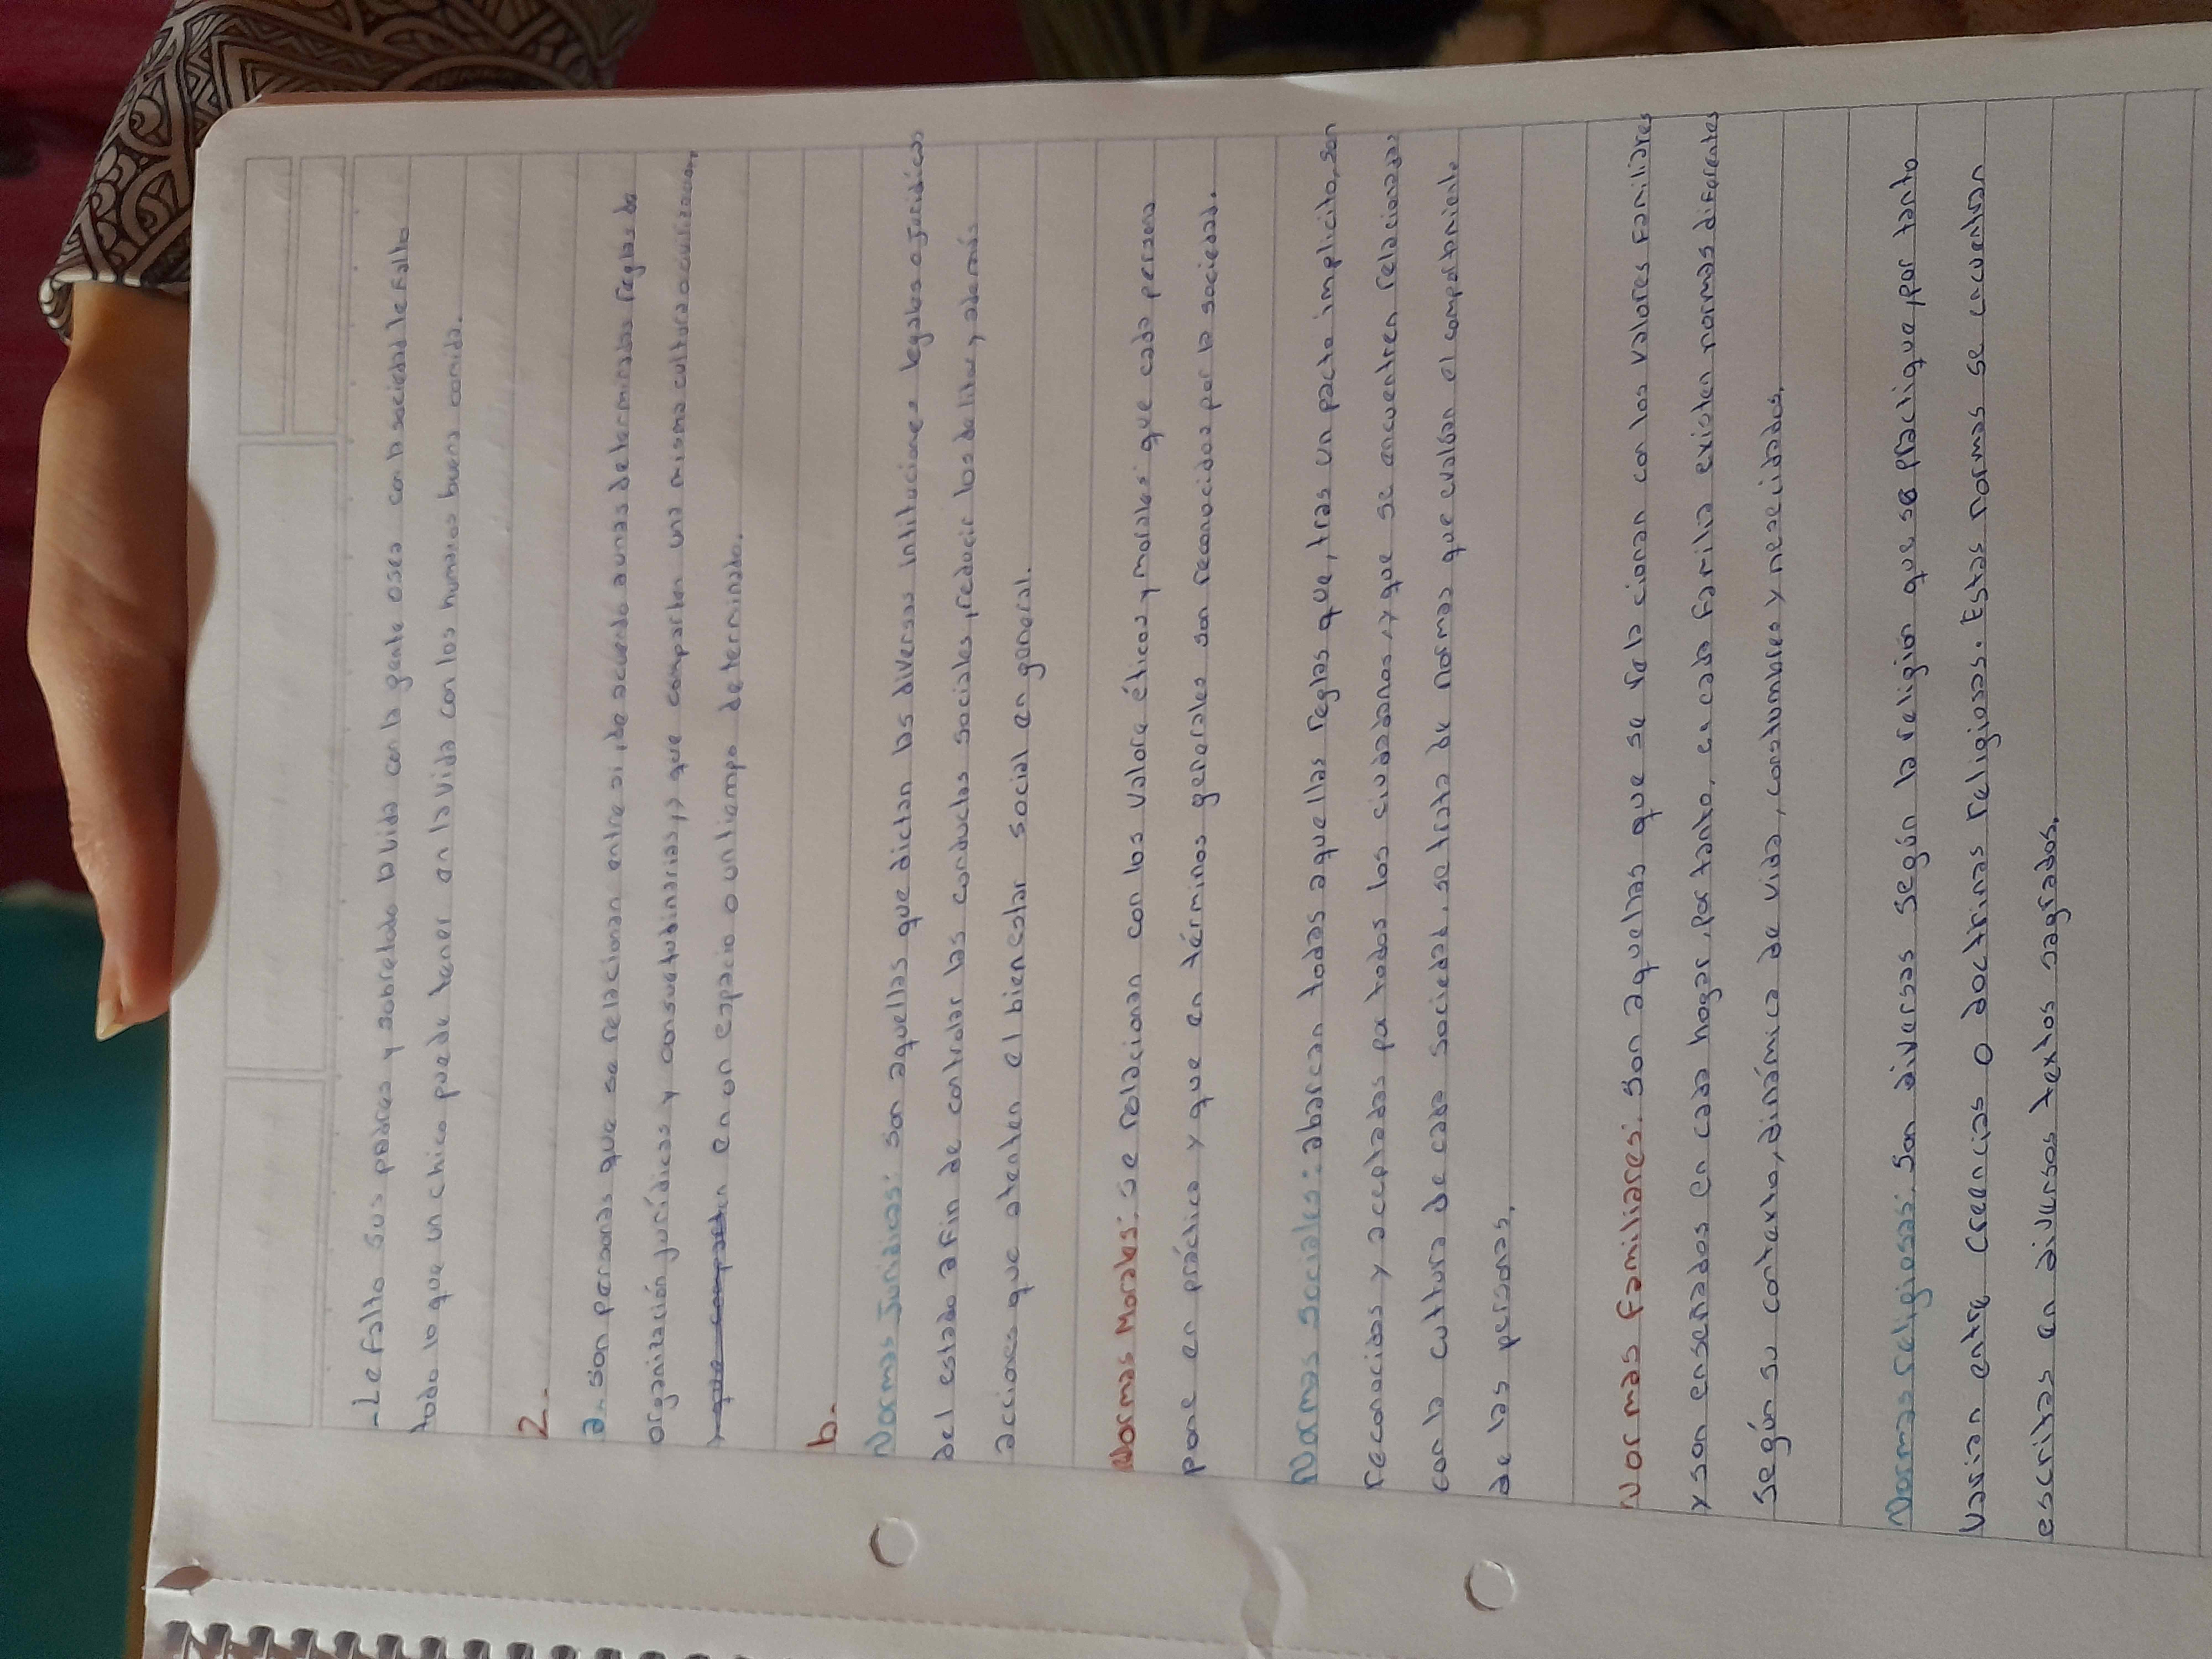 -Le falto sus padres y sobretodo la vida con la gente osea con la sociedad le falto
todo lo que un chico puede tener en la vida con los humanos buena comida.
2.
a.. son personas que se relacionan entre si, de acuerdo a unas determinadas reglas de
organización jurídicas y consuetudinarias, y que comparten una misma cultura o civilizacion,
en un espacio o un tiempo determinado.
b.
Normas Juridicas: son aquellas que dictan las diversas intituciones legales o juridicos
del estado a fin de controlar las conductas sociales, reducir los delitos, y, además
acciones que atenten el bienestar social en general.
Normas Morales: se relacionan con los valore éticos y morales que cada persona
pone en práctica y que en términos generales son reconocidos por la sociedad.
Normas Sociales: abarcan todas aquellas reglas que, tras un pacto implicito, son
reconocidas y acceptadas por todos los ciudadanos, y que se encuentren relacionadas
con la cultura de cada sociedad, se trata de normas que evalúan el comportamiento
de las personas,
Normas Familiares: son aquellas que se relacionan con los valores Familiares
y son enseñados en cada hogar, por tanto, en cada Familia existen normas diferentes
según su contexto, dinámica de vida, constumbres y nesecidades,
Normas religiosas: son diversas según la religion que se practique, por tanto
varian entre creencias o doctrinas religiosas. Estas normas se encuentran
escritas en diversos textos sagrados,